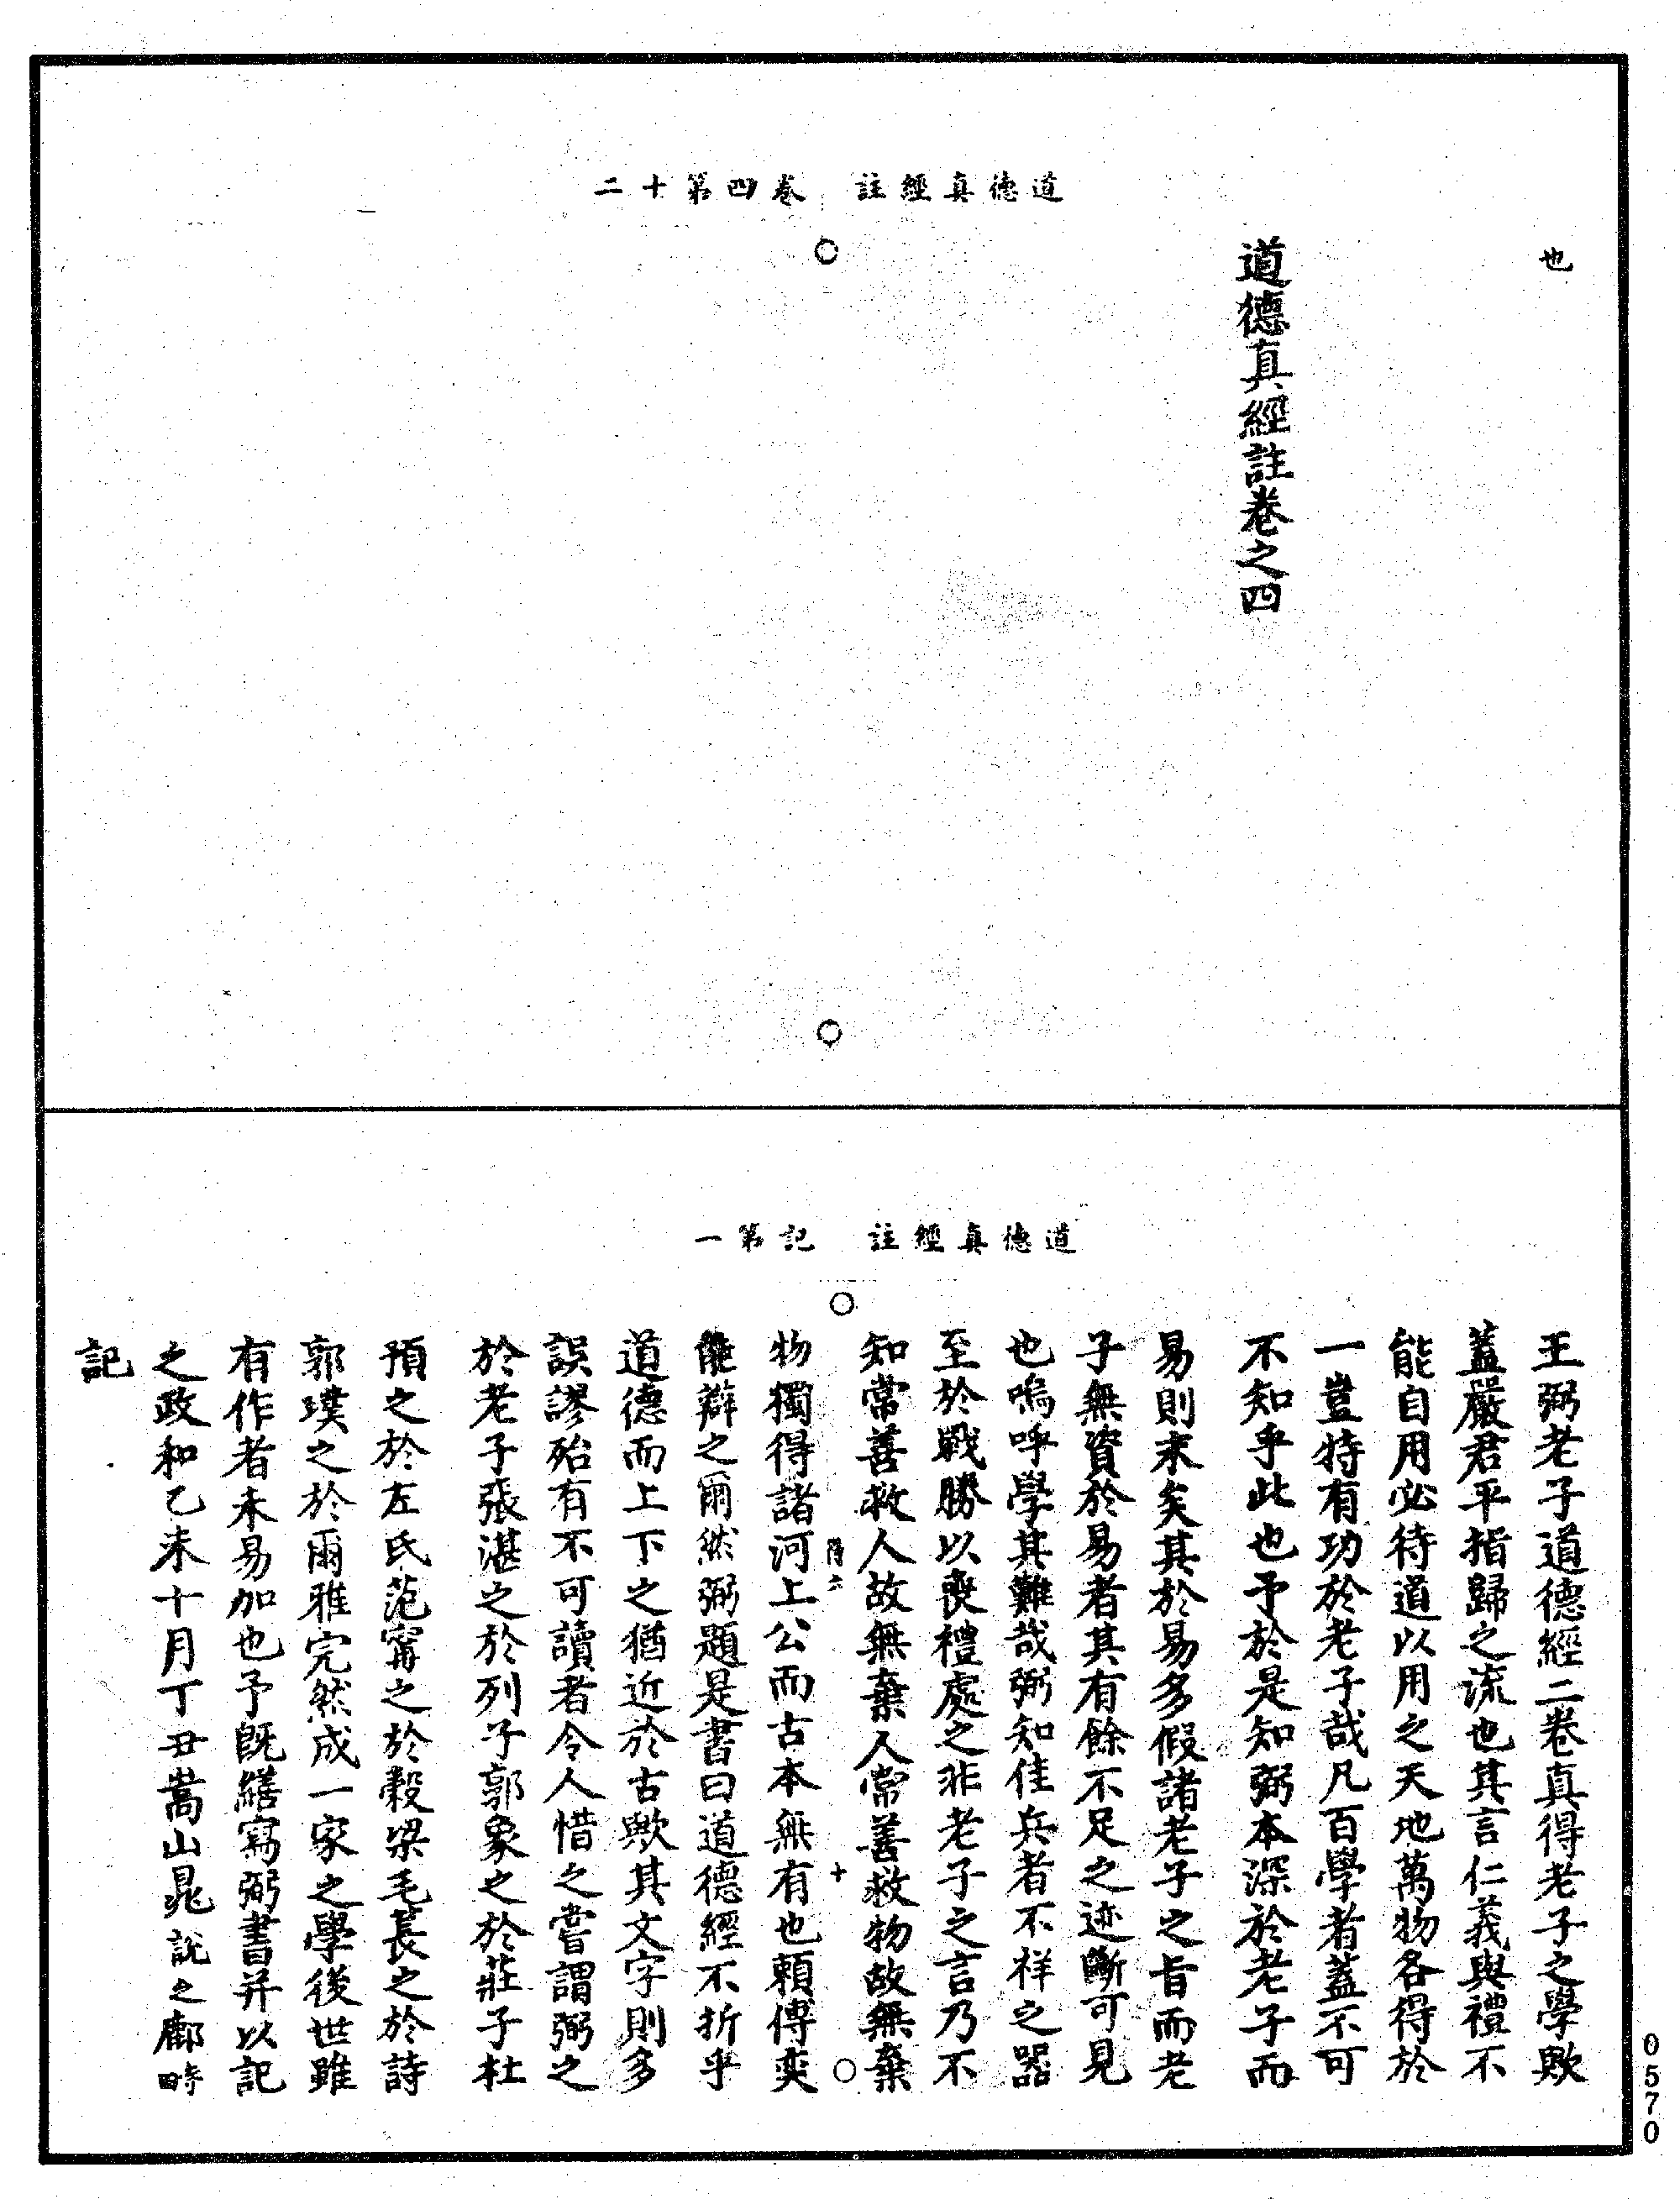 道德真經註　卷四第十二
也
道德真經註卷之四
道德真經註　記第一
王弼老子道德經二卷真得老子之學歟
蓋嚴君平指歸之流也其言仁義與禮不
能自用必待道以用之天地萬物各得於
一豈特有功於老子哉凡百學者蓋不可
不知乎此也予於是知弼本深於老子而
易則末矣其於易多假諸老子之旨而老
子無資於易者其有餘不足之迹斷可見
也嗚呼學其難哉弼知佳兵者不祥之器
至於戰勝以喪禮處之非老子之言乃不
知常善救人故無棄人常善救物故無棄
十
物獨得諸河上公而古本無有也賴傅奕
能辯之爾然弼題是書曰道德經不折乎
道德而上下之猶近於古歟其文字則多
誤謬殆有不可讀者令人惜之嘗謂弼之
於老子張湛之於列子郭象之於莊子杜
預之於左氏范甯之於穀梁毛萇之於詩
郭璞之於爾雅完然成一家之學後世雖
有作者未易加也予既繕寫弼書并以記
之政和乙未十月丁丑嵩山晁說之鄜畤
記
0570